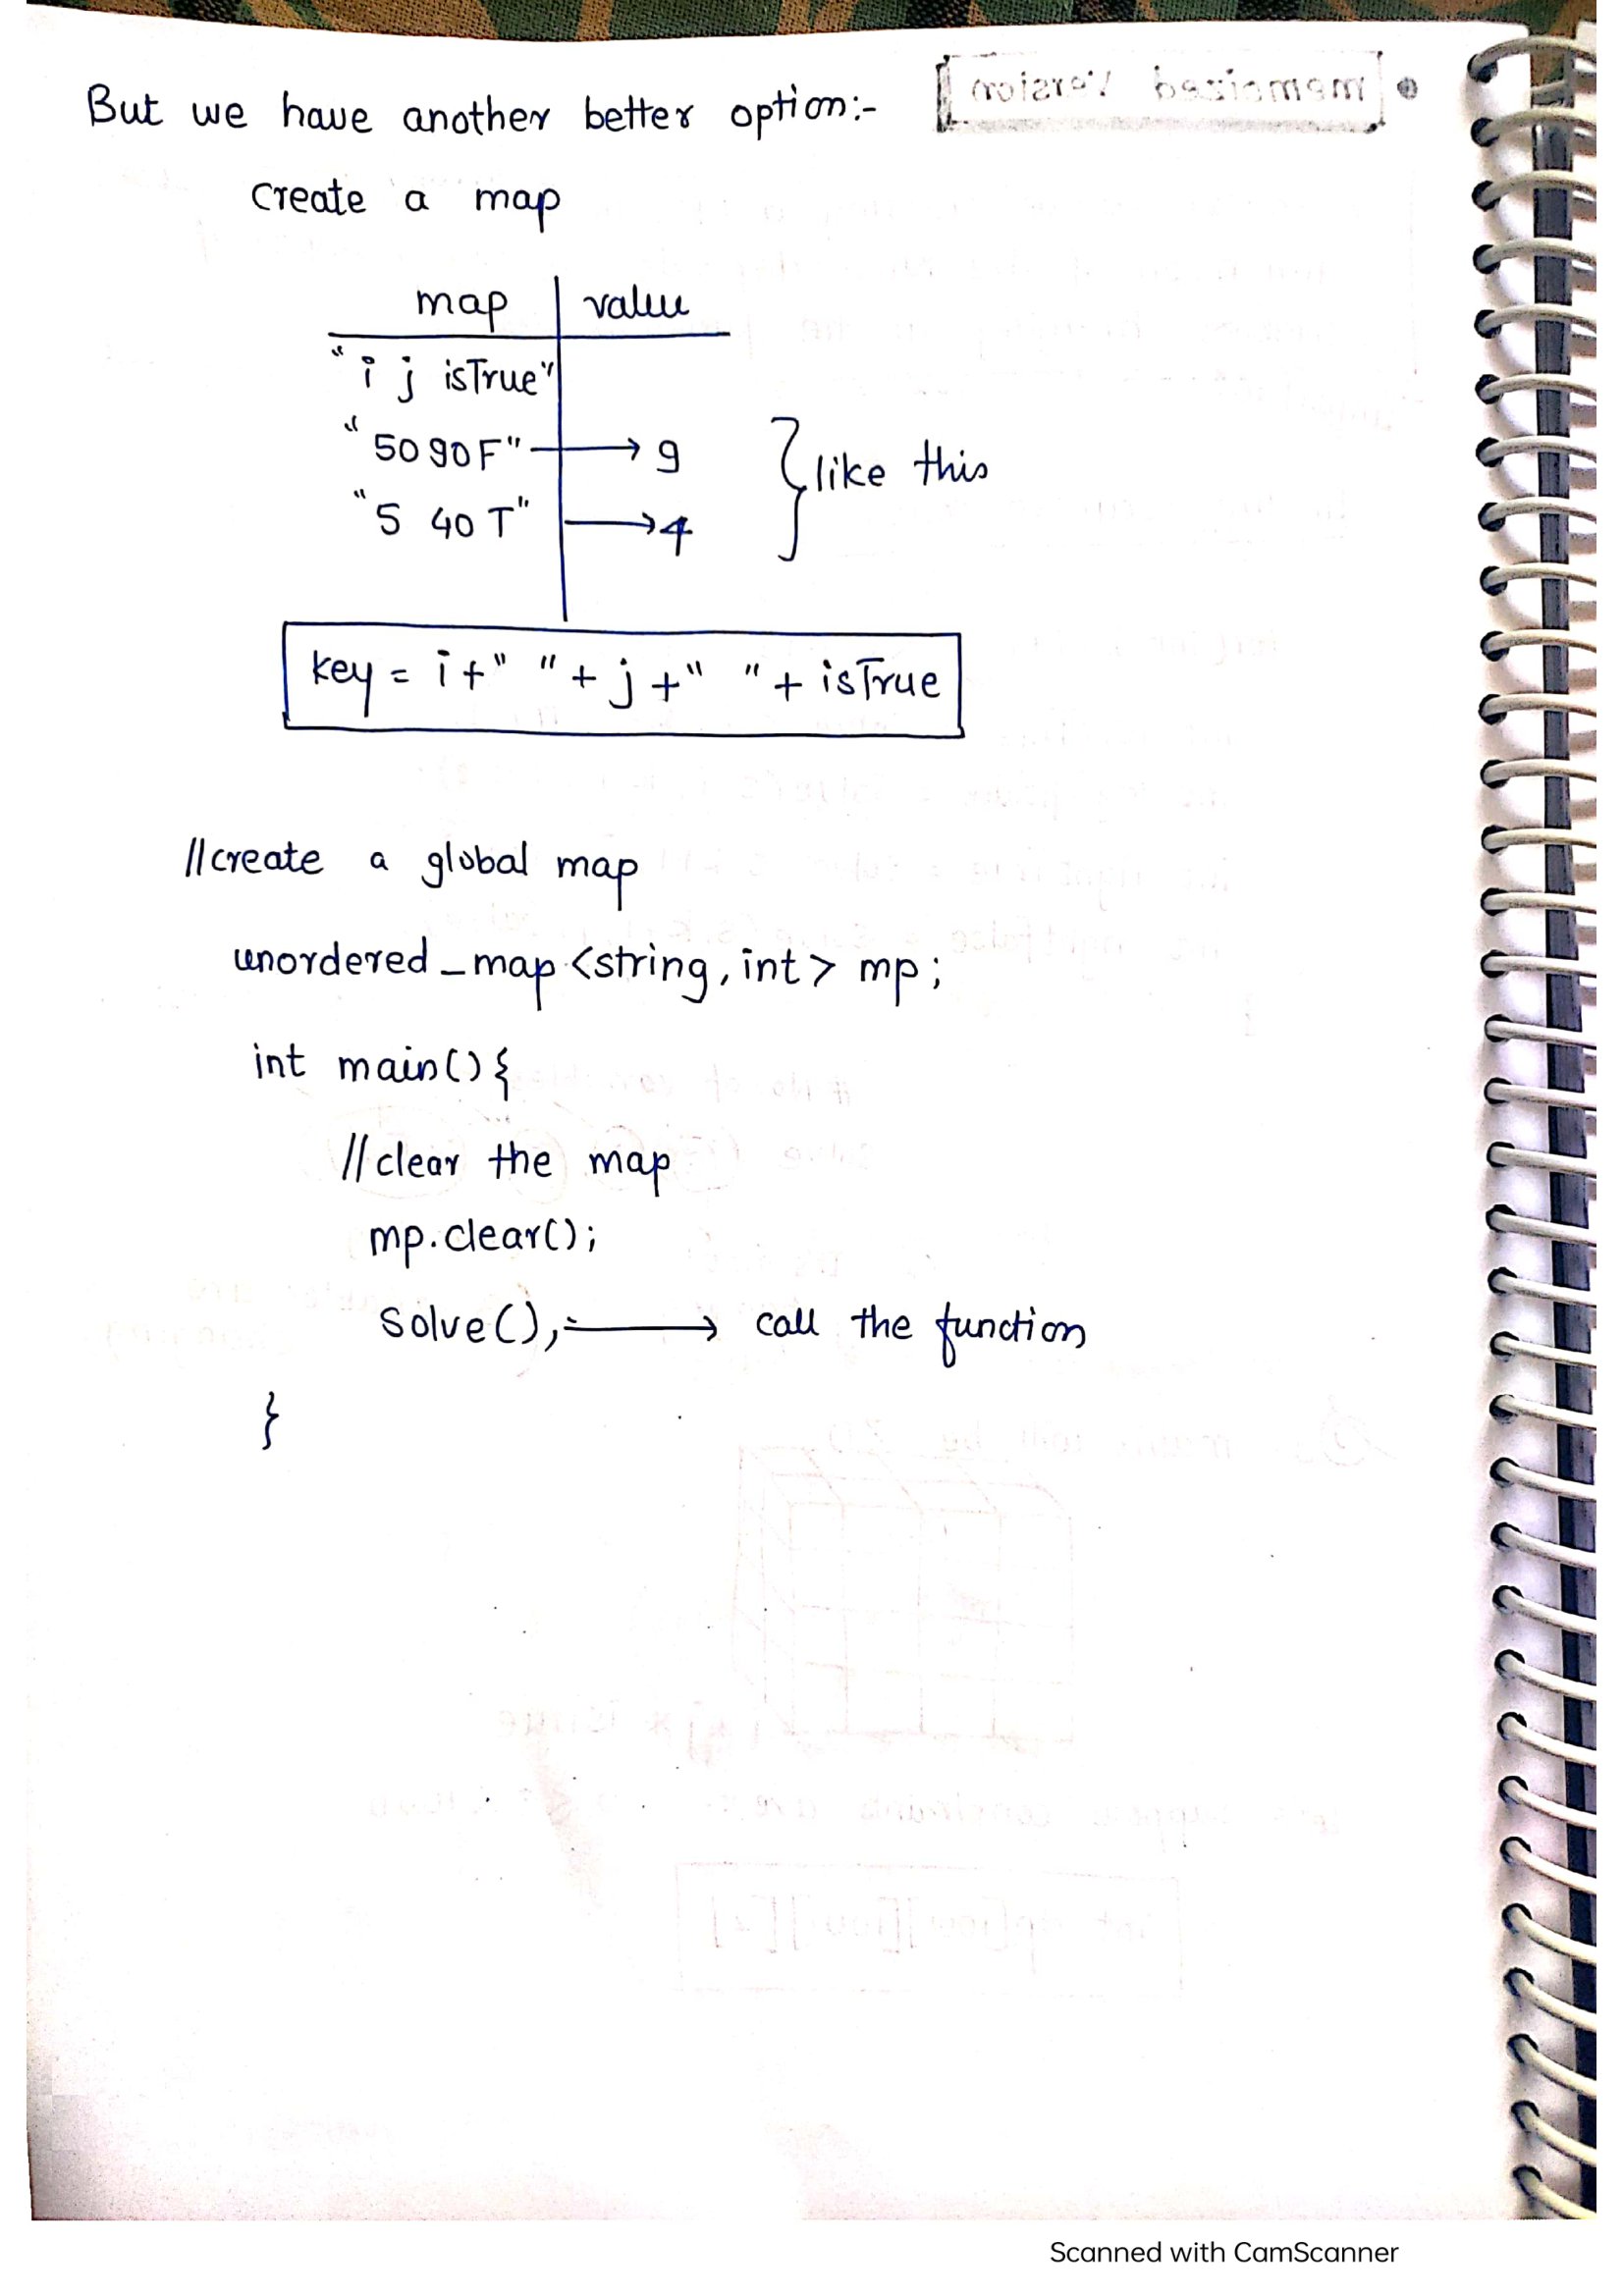 But we have another better option:-
Create a map
map | value
"i j isTrue"
"5 0 90 F" → 9
"5 40 T" → 4
} like this
key = i + " " + j + " " + isTrue
//create a global map
unordered_map <string, int> mp;
int main() {
//clear the map
mp.clear();
Solve(); → call the function
}
Scanned with CamScanner